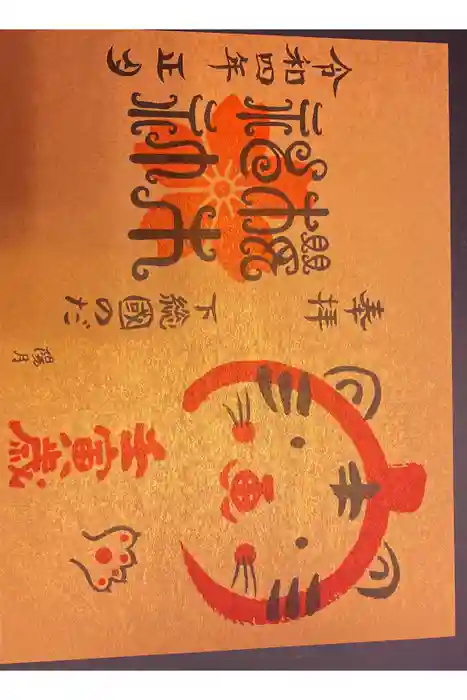 奉拝
下総國のだ
櫻木
神社
令和四年 正月
壬寅歳